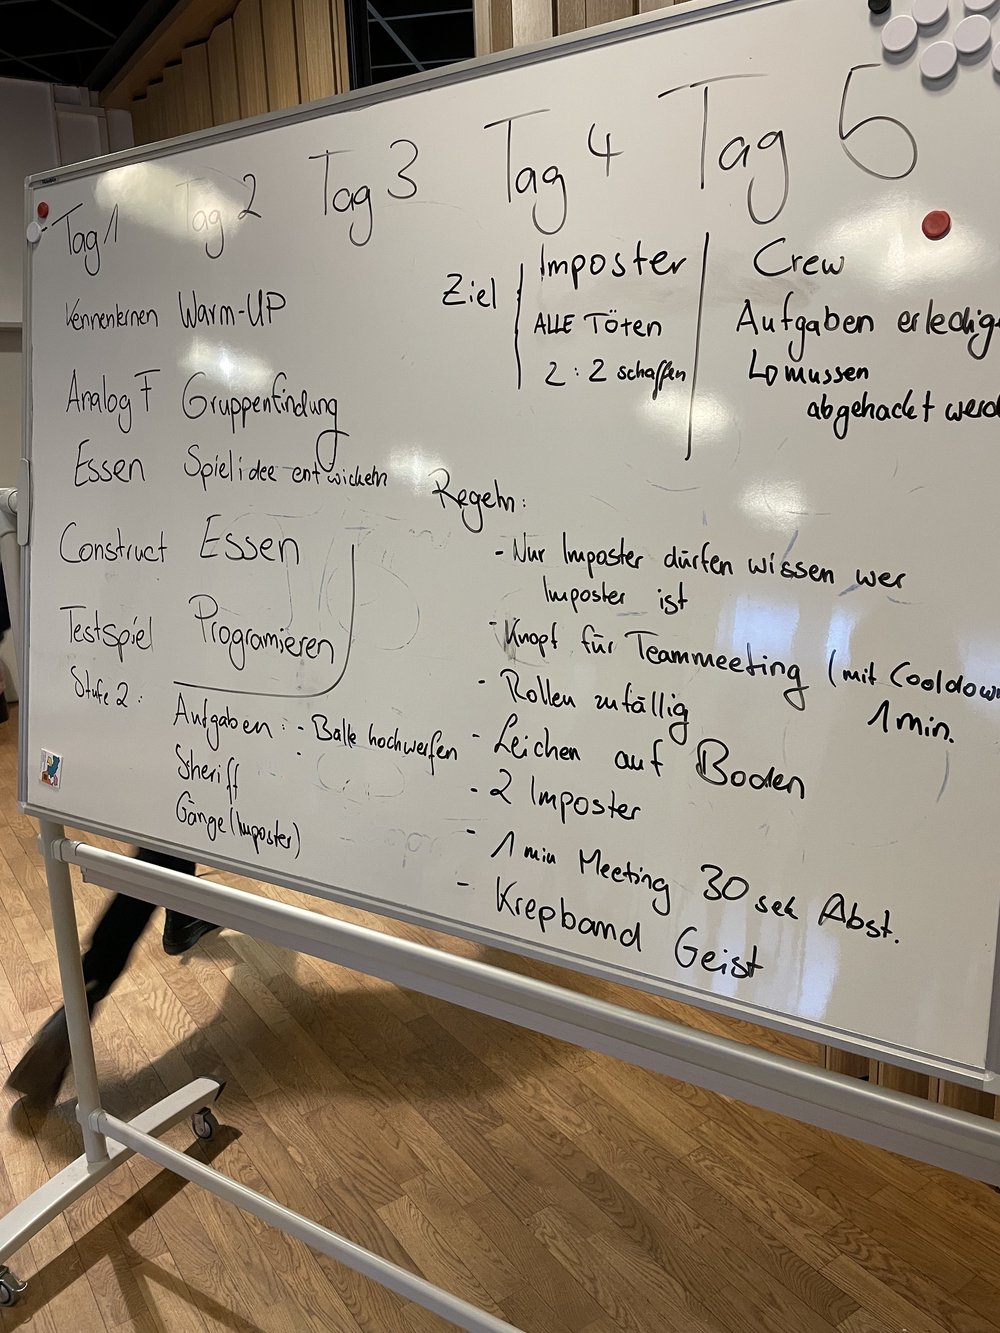 Tag 1 Tag 2 Tag 3 Tag 4 Tag 5
Kennenlernen
Analog F
Essen
Construct
Testspiel
Stufe 2:
Warm-UP
Gruppenfindung
Spielidee entwickeln
Essen
Programieren
Aufgaben: - Bälle hochwerfen
Sheriff
Gänge (Imposter)
Ziel
Imposter
ALLE Töten
2 : 2 schaffen
Crew
Aufgaben erledige
↳ mussen
abgehackt werd
Regeln:
- Nur Imposter dürfen wissen wer
Imposter ist
- Knopf für Teammeeting (mit Cooldow
1 min.
- Rollen zufällig
- Leichen auf Boden
- 2 Imposter
- 1 min Meeting 30 sek Abst.
- Krepband Geist